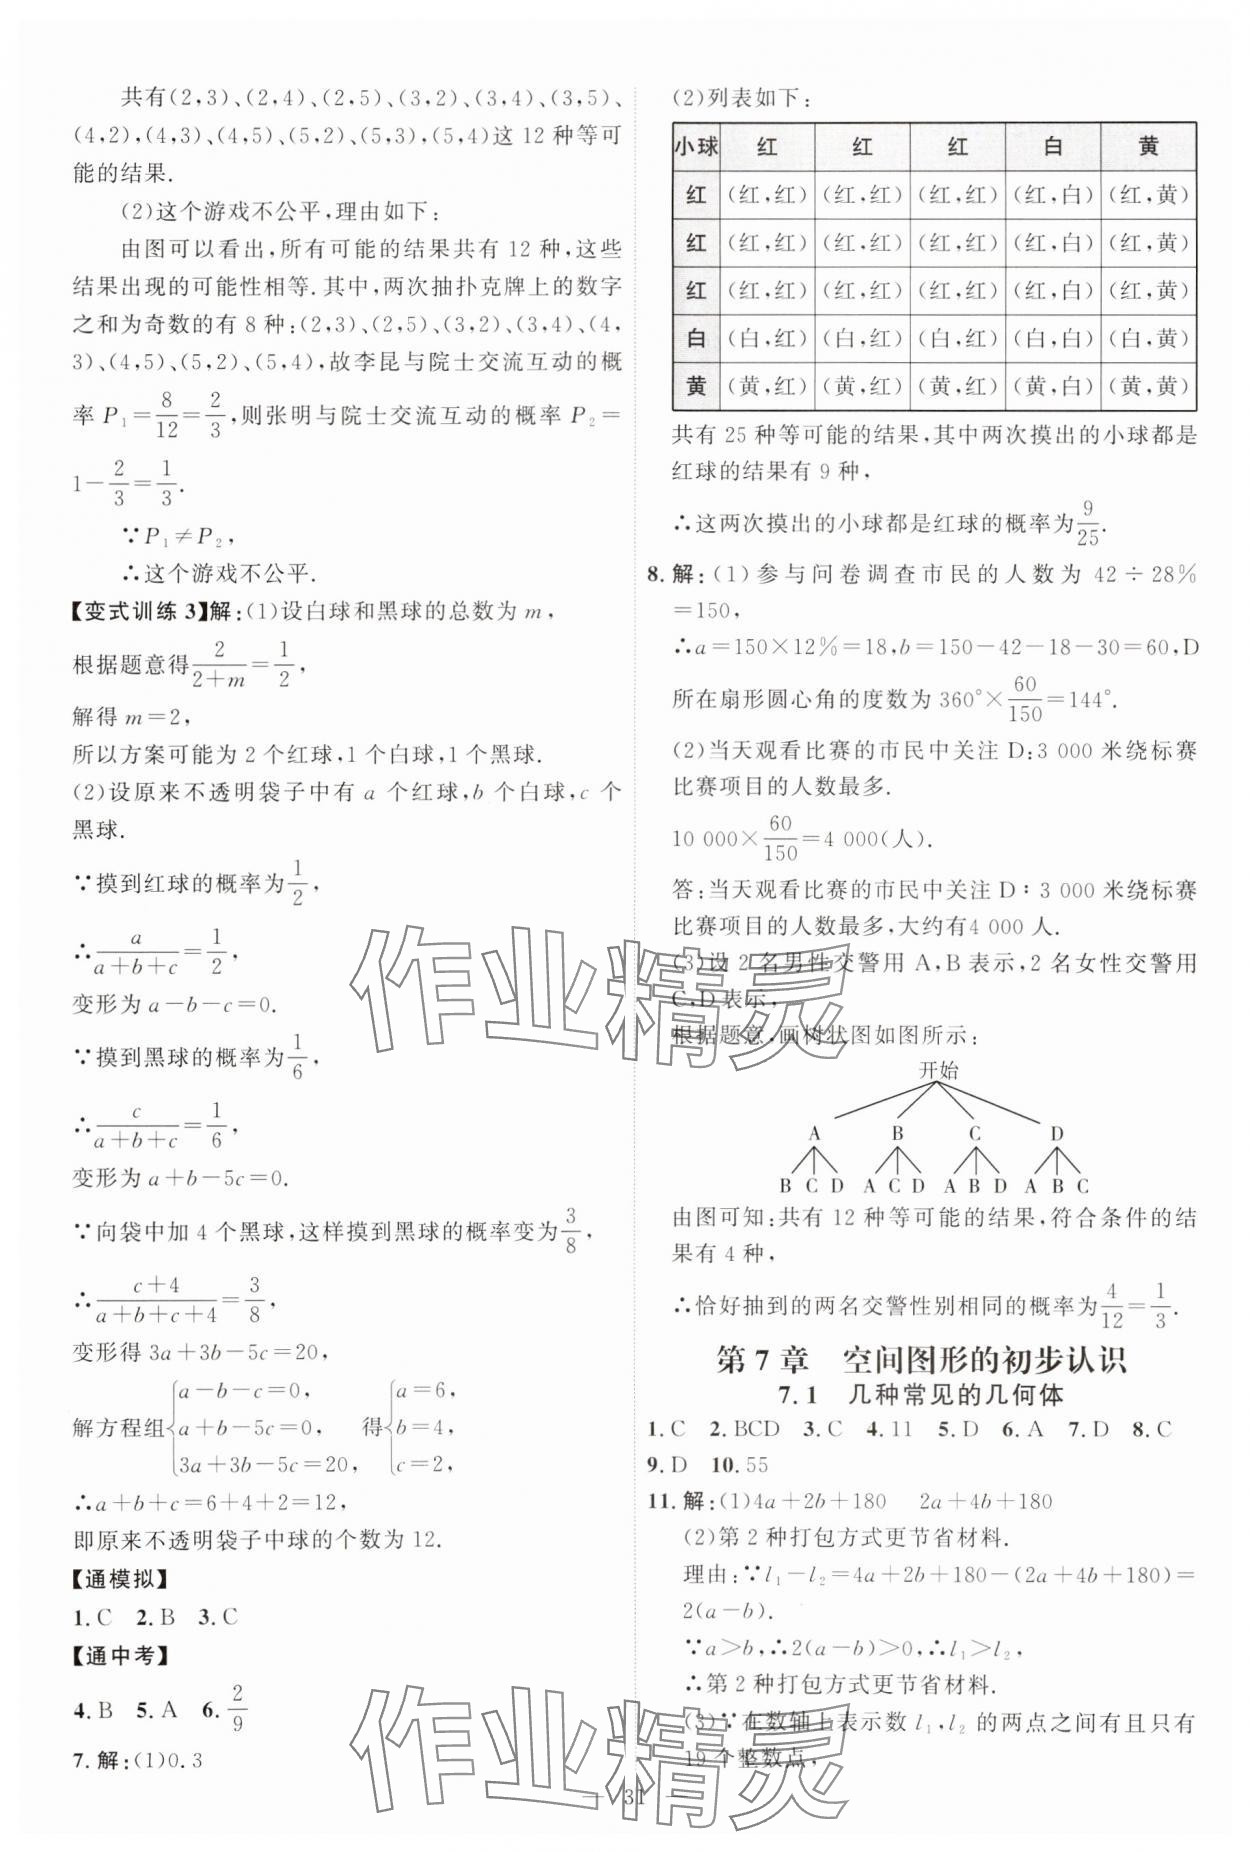 共有(2,3)、(2,4)、(2,5)、(3,2)、(3,4)、(3,5)、
(4,2),(4,3)、(4,5)、(5,2)、(5,3),(5,4)这 12 种等可
能的结果.
(2)这个游戏不公平,理由如下:
由图可以看出,所有可能的结果共有 12 种,这些
结果出现的可能性相等.其中,两次抽扑克牌上的数字
之和为奇数的有 8 种:(2,3)、(2,5)、(3,2)、(3,4)、(4,
3)、(4,5)、(5,2)、(5,4),故李昆与院士交流互动的概
率 P₁=8/12=2/3,则张明与院士交流互动的概率 P₂=
1-2/3=1/3.
∵P₁≠P₂,
∴这个游戏不公平.
【变式训练 3】解:(1)设白球和黑球的总数为 m,
根据题意得2/(2+m)=1/2,
解得 m=2,
所以方案可能为 2 个红球,1 个白球,1 个黑球.
(2)设原来不透明袋子中有 a 个红球,b 个白球,c 个
黑球.
∵摸到红球的概率为1/2,
∴a/(a+b+c)=1/2,
变形为 a-b-c=0.
∵摸到黑球的概率为1/6,
∴c/(a+b+c)=1/6,
变形为 a+b-5c=0.
∵向袋中加 4 个黑球,这样摸到黑球的概率变为3/8,
∴(c+4)/(a+b+c+4)=3/8,
变形得 3a+3b-5c=20,
解方程组{a-b-c=0, a+b-5c=0, 3a+3b-5c=20, 得{a=6, b=4, c=2,
∴a+b+c=6+4+2=12,
即原来不透明袋子中球的个数为 12.
【通模拟】
1.C 2.B 3.C
【通中考】
4.B 5.A 6.2/9
7.解:(1)0.3
(2)列表如下:
小球 红 红 红 白 黄
红 (红,红) (红,红) (红,红) (红,白) (红,黄)
红 (红,红) (红,红) (红,红) (红,白) (红,黄)
红 (红,红) (红,红) (红,红) (红,白) (红,黄)
白 (白,红) (白,红) (白,红) (白,白) (白,黄)
黄 (黄,红) (黄,红) (黄,红) (黄,白) (黄,黄)
共有 25 种等可能的结果,其中两次摸出的小球都是
红球的结果有 9 种,
∴这两次摸出的小球都是红球的概率为9/25.
8.解:(1)参与问卷调查市民的人数为 42÷28%
=150,
∴a=150×12%=18,b=150-42-18-30=60,D
所在扇形圆心角的度数为 360°×60/150=144°.
(2)当天观看比赛的市民中关注 D:3 000 米绕标赛
比赛项目的人数最多.
10 000×60/150=4 000(人).
答:当天观看比赛的市民中关注 D:3 000 米绕标赛
比赛项目的人数最多,大约有4 000 人.
(3)设 2 名男性交警用 A,B 表示,2 名女性交警用
C,D 表示,
根据题意,画树状图如图所示:
开始
A B C D
B C D A C D A B D A B C
由图可知:共有 12 种等可能的结果,符合条件的结
果有 4 种,
∴恰好抽到的两名交警性别相同的概率为4/12=1/3.
第 7 章 空间图形的初步认识
7.1 几种常见的几何体
1.C 2.BCD 3.C 4.11 5.D 6.A 7.D 8.C
9.D 10.55
11.解:(1)4a+2b+180 2a+4b+180
(2)第 2 种打包方式更节省材料.
理由:∵l₁-l₂=4a+2b+180-(2a+4b+180)=
2(a-b).
∵a>b,∴2(a-b)>0,∴l₁>l₂,
∴第 2 种打包方式更节省材料.
(3)∵在数轴上表示数 l₁,l₂ 的两点之间有且只有
19 个整数点,
31
作业精灵
作业精灵